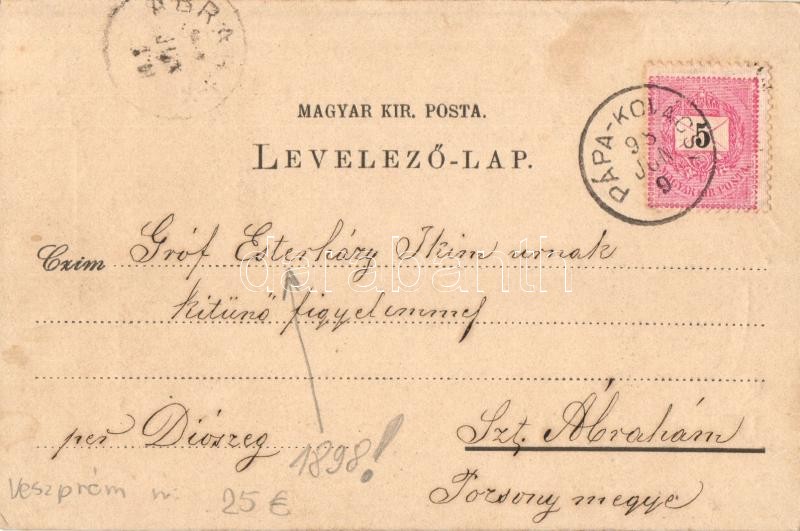 ABRA
MAGYAR KIR. POSTA.
LEVELEZŐ-LAP.
PÁPA-KOVÁCSI
98
JUN
9
5
MAGYAR KIR. POSTA
Czim Gróf Esterházy Ikim urnak
kitünő figyelemmel
darabanth
per Diószeg
Szt. Ábrahám
Pozsony megye
1898!
Veszprém
25 €